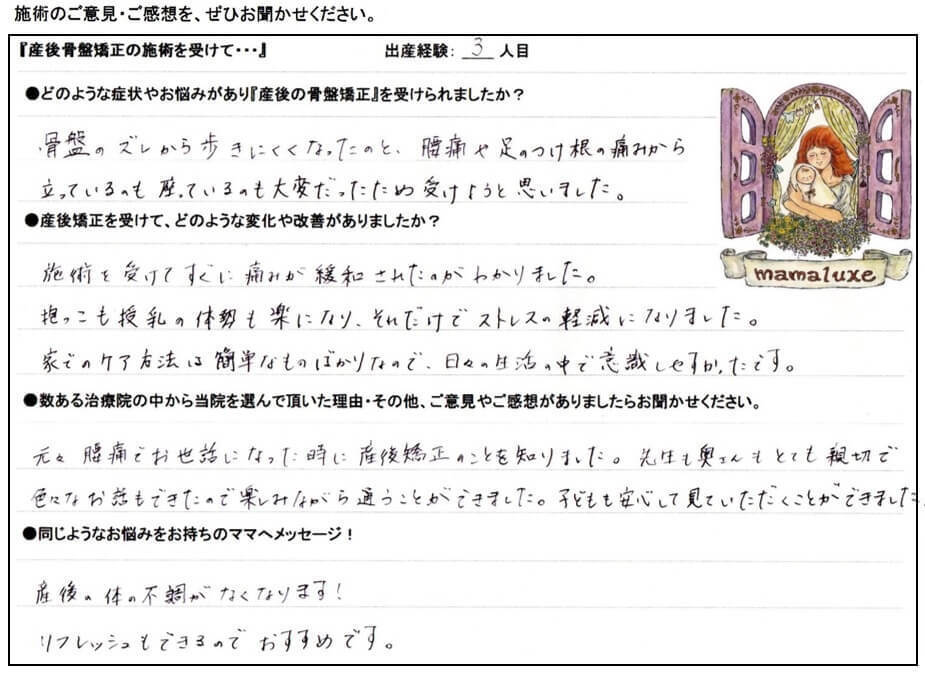 施術のご意見・ご感想を、ぜひお聞かせください。
『産後骨盤矯正の施術を受けて・・・』 出産経験: 3 人目
●どのような症状やお悩みがあり『産後の骨盤矯正』を受けられましたか？
骨盤のズレから歩きにくくなったのと、腰痛や足のつけ根の痛みから
立っているのも座っているのも大変だったため受けようと思いました。
●産後矯正を受けて、どのような変化や改善がありましたか？
施術を受けてすぐに痛みが緩和されたのがわかりました。
抱っこも授乳の体勢も楽になり、それだけでストレスの軽減になりました。
家でのケア方法は簡単なものばかりなので、日々の生活の中で意識しやすかったです。
●数ある治療院の中から当院を選んで頂いた理由・その他、ご意見やご感想がありましたらお聞かせください。
元々腰痛でお世話になった時に産後矯正のことを知りました。先生も奥さんもとても親切で
色々なお話もできたので楽しみながら通うことができました。子どもも安心して見ていただくことができました。
●同じようなお悩みをお持ちのママへメッセージ！
産後の体の不調がなくなります！
リフレッシュもできるのでおすすめです。
mamaluxe